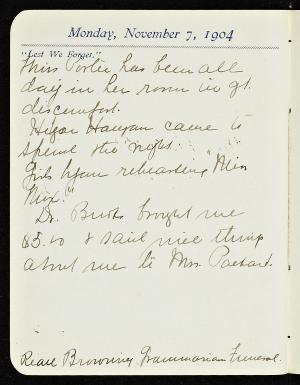 Monday, November 7, 1904
"Lest We Forget."
Miss Porter has been all
day in her room in gt.
discomfort.
came to
spend the night.
Girls began rehearsing "Miss
Nix."
Dr. Brooks bought me
85.00 & said nice things
about me to Mrs. Packard.
Read Browning Grammarian Funeral.